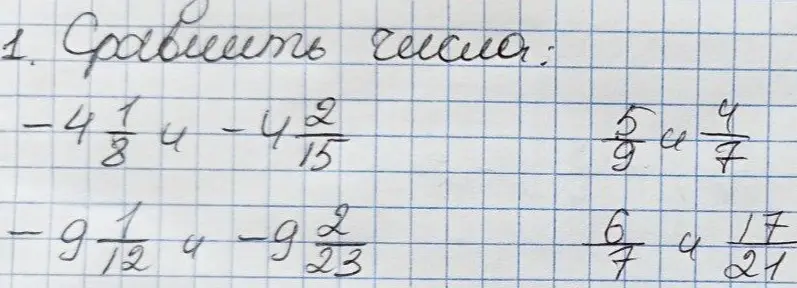 1. Сравнить числа:
-4 1/8 и -4 2/15 5/9 и 4/7
-9 1/12 и -9 2/23 6/7 и 17/21